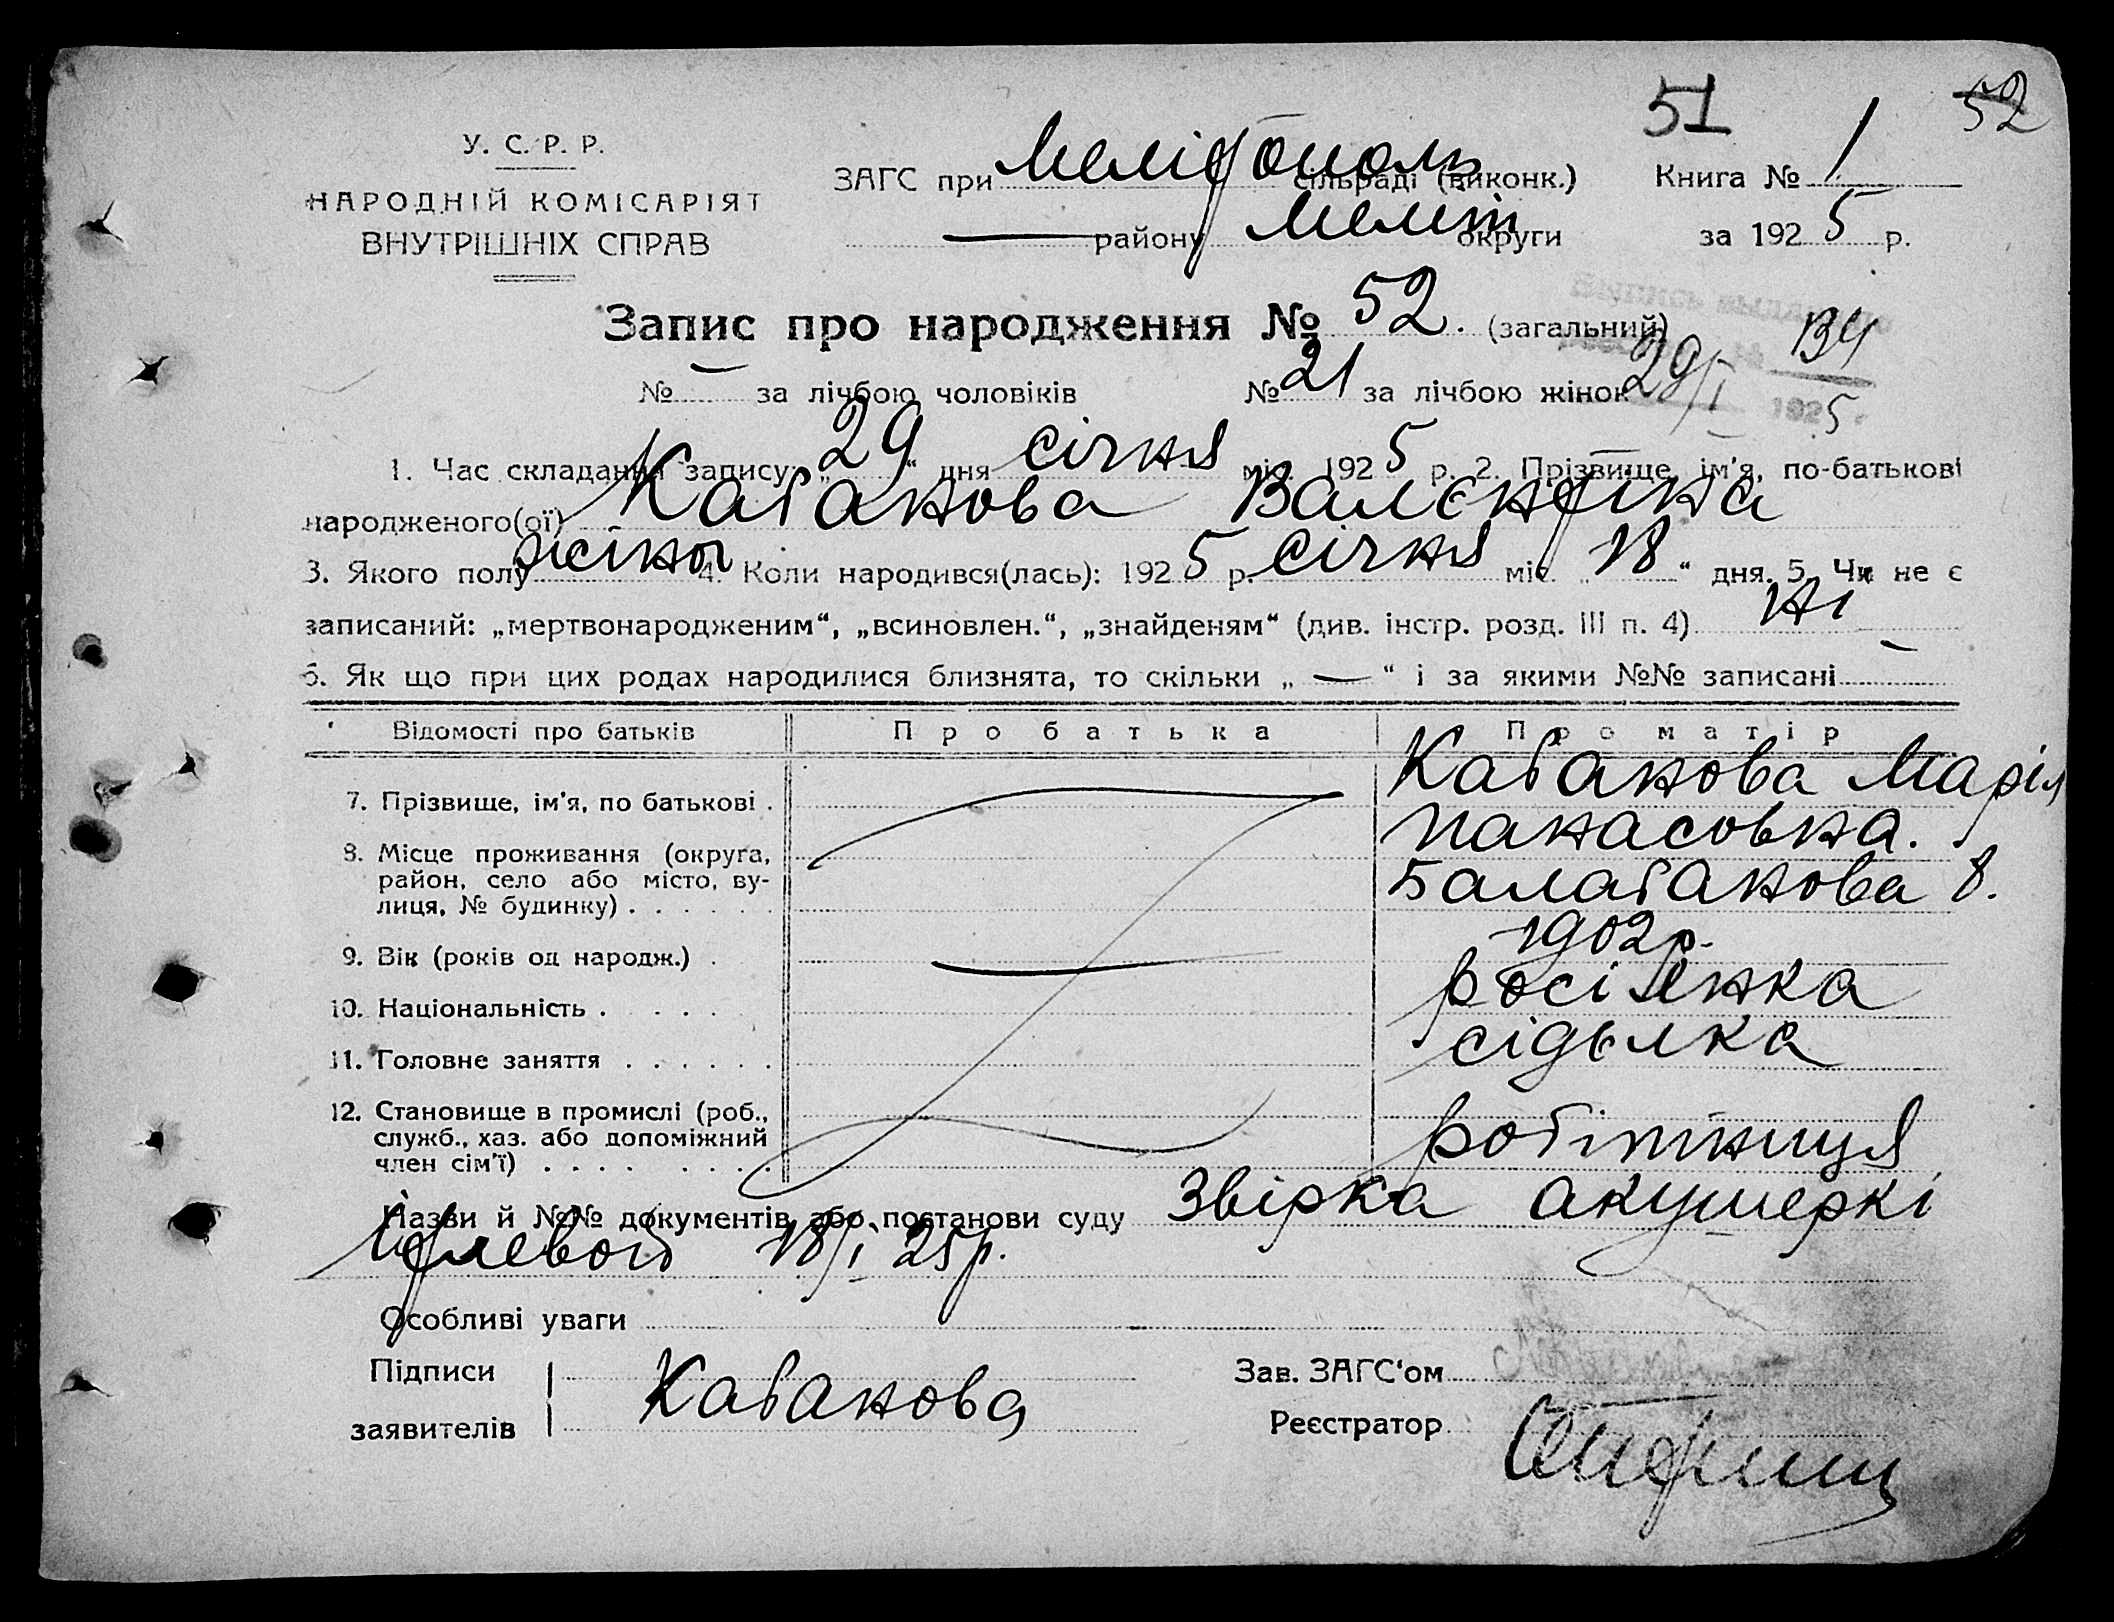 51 52
У. С. Р. Р.
НАРОДНІЙ КОМІСАРІЯТ
ВНУТРІШНІХ СПРАВ
ЗАГС при Мелітополь сільраді (виконк.) Книга № 1
— району Меліт округи за 1925 р.
Запис про народження № 52. (загальний)
134
№ — за лічбою чоловіків № 21 за лічбою жінок 29/I 1925
1. Час складання запису „29“ дня січня міс. 1925 р. 2. Прізвище, ім'я, по-батькові
народженого(ої) Кабанова Валєнтіна
3. Якого полу жіноч 4. Коли народився(лась): 1925 р. Січня міс. „18“ дня. 5. Чи не є
записаний: „мертвонародженим“, „всиновлен.“, „знайденям“ (див. інстр. розд. III п. 4) ні
6. Як що при цих родах народилися близнята, то скільки „—“ і за якими №№ записані —
Відомості про батьків Про батька Про матір
7. Прізвище, ім'я, по батькові . Кабанова Марія
Панасовна.
8. Місце проживання (округа,
район, село або місто, ву-
лиця, № будинку) . . . . . . Балабанова 8.
9. Вік (років од народж.) . — 1902р.
10. Національність . . . . . росіянка
11. Головне заняття . . . . . . сіделка
12. Становище в промислі (роб.,
служб., хаз. або допоміжний
член сім'ї) . . . . . . . . робітниця
Назви й №№ документів або постанови суду Звірка акушеркі
18/I 25р.
Особливі уваги
Підписи
заявителів Кабанова
Зав. ЗАГС'ом
Реєстратор